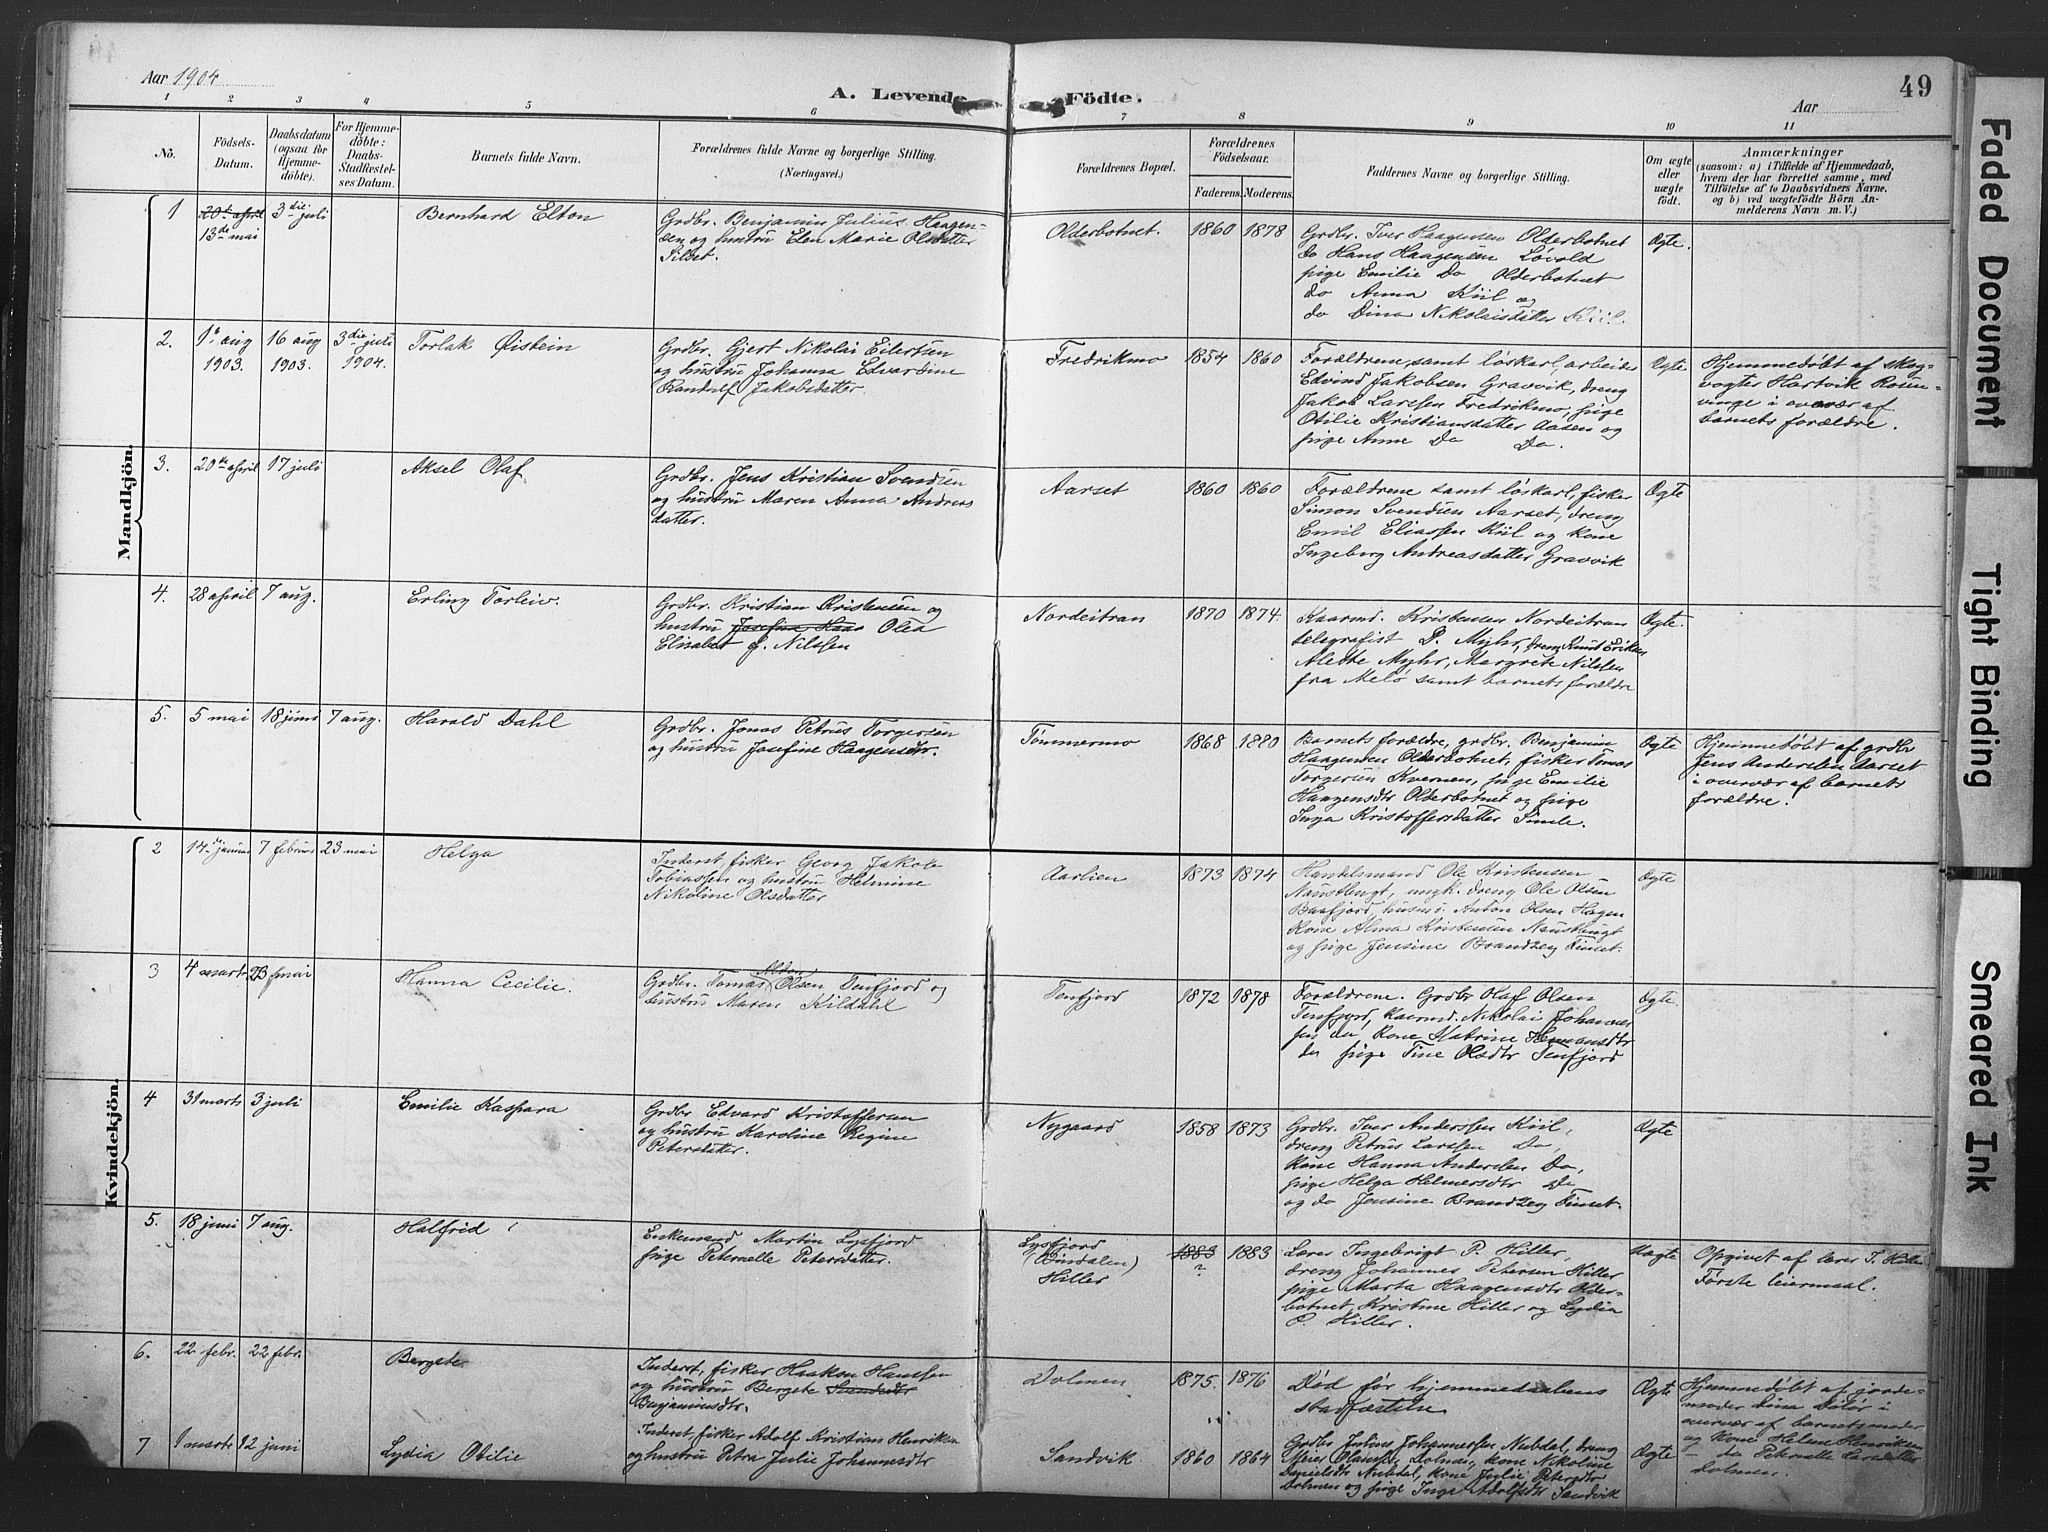 Aar 1904
A. Levende Födte.
Aar
49
1 2 3 4 5 6 7 8 9 10 11
No.
Födsels-
Datum.
Daabsdatum
(ogsaa for
Hjemme-
döbte).
For Hjemme-
döbte:
Daabs-
Stadfæstel-
ses Datum.
Barnets fulde Navn.
Forældrenes fulde Navne og borgerlige Stilling.
(Næringsvei.)
Forældrenes Bopæl.
Forældrenes
Födselsaar.
Faderens. Moderens.
Faddernes Navne og borgerlige Stilling.
Om ægte
eller
uægte
födt.
Anmærkninger
(saasom: a) i Tilfælde af Hjemmedaab,
hvem der har forrettet samme, med
Tilföielse af to Daabsvidners Navne.
og b) ved uægtefödte Börn An-
melderens Navn m. V.)
Mandkjön.
1
20de april
13de mai
3die juli
Bernhard Elton
Grdbr. Benjamin Julius Haagen-
sen og hustru Elen Marie Olsdatter
Silset.
Olderbotnet.
1860 1878
Grdbr. Iver Haagensen Olderbotnet
do Hans Haagensen Løvold
pige Emilie Do Olderbotnet
do Anna Kiil og
do Dina Nikolaisdatter Kiil.
Ægte.
2.
1ste aug
1903.
16 aug
1903.
3die juli
1904.
Torlak Øistein
Grdbr. Gjert Nikolai Eilertsen
og hustru Johanna Edvardine
Randulf Jakobsdatter.
Fredrikmo
1854 1860
Forældrene, samt løskarl, arbeider
Edvind Jakobsen Gravvik, dreng
Jakob Larssen Fredrikmo, pige
Otilie Kristiansdatter Aasen og
pige Anne Do Do.
Ægte
Hjemmedøbt af skog-
vogter Hartvik Rosen-
vinge i overvær af
barnets forældre.
3.
20de april
17 juli
Aksel Olaf
Grdbr. Jens Kristian Svendsen
og hustru Maren Anna Andreas
datter.
Aarset
1860 1860
Forældrene samt løskarl, fisker
Simon Svendsen Aarset, dreng
Emil Eliassen Kiil og kone
Ingeborg Andreasdatter Gravvik
Ægte
4.
28 april
7 aug.
Erling Torleiv.
Grdbr. Kristian Kristensen og
hustru Josefine Haas Olea
Elisabet f. Nilssen
Nordeitran
1870 1874.
Kaarmd. Kristensen Nordeitran
telegrafist P. Myhr, dreng Knut Eriksen
Alette Myhr, Margrete Nilssen
fra Melø samt barnets forældre
Ægte.
5.
5 mai
18 juni
7 aug.
Harald Dahl
Grdbr. Jonas Petrus Torgersen
og hustru Josefine Haagensdtr.
Tømmermo
1868 1880
Barnets forældre, grdbr. Benjamin
Haagensen Olderbotnet, fisker Tomas
Torgersen Kvernen, pige Emilie
Haagensdtr Olderbotnet og pige
Inga Kristoffersdatter Simle.
Ægte
Hjemmedøbt af grdbr
Jens Anderssen Aarset
i overvær af barnets
forældre.
Kvindekjön.
2
14de januar
7 februar
23 mai
Helga
Inderst, fisker Georg Jakob
Tobiassen og hustru Helmine
Nikoline Olsdatter
Aarlien
1873 1874
Handelsmand Ole Kristensen
Naustbugt, ungk. dreng Ole Olsen
husmd. Anton Olsen Hagen
Kone Alma Kristensen Naustbugt
og pige Jensine Brandzeg Finset.
Ægte
3
4 marts
23 mai
Hanna Cecilie.
Grdbr. Tomas Alton Olsen Tenfjord og
hustru Maren Kildahl
Tenfjord
1872 1878
Forældrene. Grdbr Olaf Olsen
Tenfjord, kaarmd. Nikolai Johannes
sen do, kone Katrine Hemmansdtr
do pige Tine Olsdtr Tenfjord
Ægte.
4
31 marts
3 juli
Emilie Kaspara
Grdbr Edvard Kristoffersen
og hustru Karoline Regine
Petersdatter.
Nygaard
1858 1873
Grdbr. Iver Anderssen Kiil,
dreng Petrus Larssen Do,
kone Hanna Anderssen Do,
pige Helga Helmersdtr Do
og do Jensine Brandzeg Finset.
Ægte
5.
18 juni
7 aug.
Halfrid
Enkemand Martin Lysfjord
pige Peternelle Petersdatter.
Lysfjord
(Bindalen)
Hiller
1883
?
1883
Lærer Ingebrigt P. Hiller,
dreng Johannes Petersen Hiller
pige Marta Haagensdtr Older-
botnet, Kristine Hiller og Lydia
P. Hiller.
Uægte
Opgivet af lærer I. Hiller
Første leiermaal.
6.
22 febr.
22 febr.
Bergete
Inderst, fisker Haakon Hanssen
og hustru Bergete Svendsdtr
Benjaminsdtr.
Dolmen
1875. 1876
Død før hjemmedaabens
stadfæstelse
Ægte
Hjemmedøbt af jorde-
moder Dina Dolør i
overvær af barnets moder
og kone Helene Henriksen
do Peternelle Larsdatter
Dolmen.
7
1 marts
12 juni
Lydia Otilie
Inderst, fisker Adolf Kristian Henriksen
og hustru Petra Julie Johannesdtr
Sandvik
1860 1864
Grdbr Julius Johannessen Nubdal, dreng
Olaussen, Dolmen, kone Nikoline
Danielsdtr Nubdal, kone Julie Petersdtr
Dolmen og pige Inga Adolfsdtr Sandvik
Ægte
Faded Document
Tight Binding
Smeared Ink